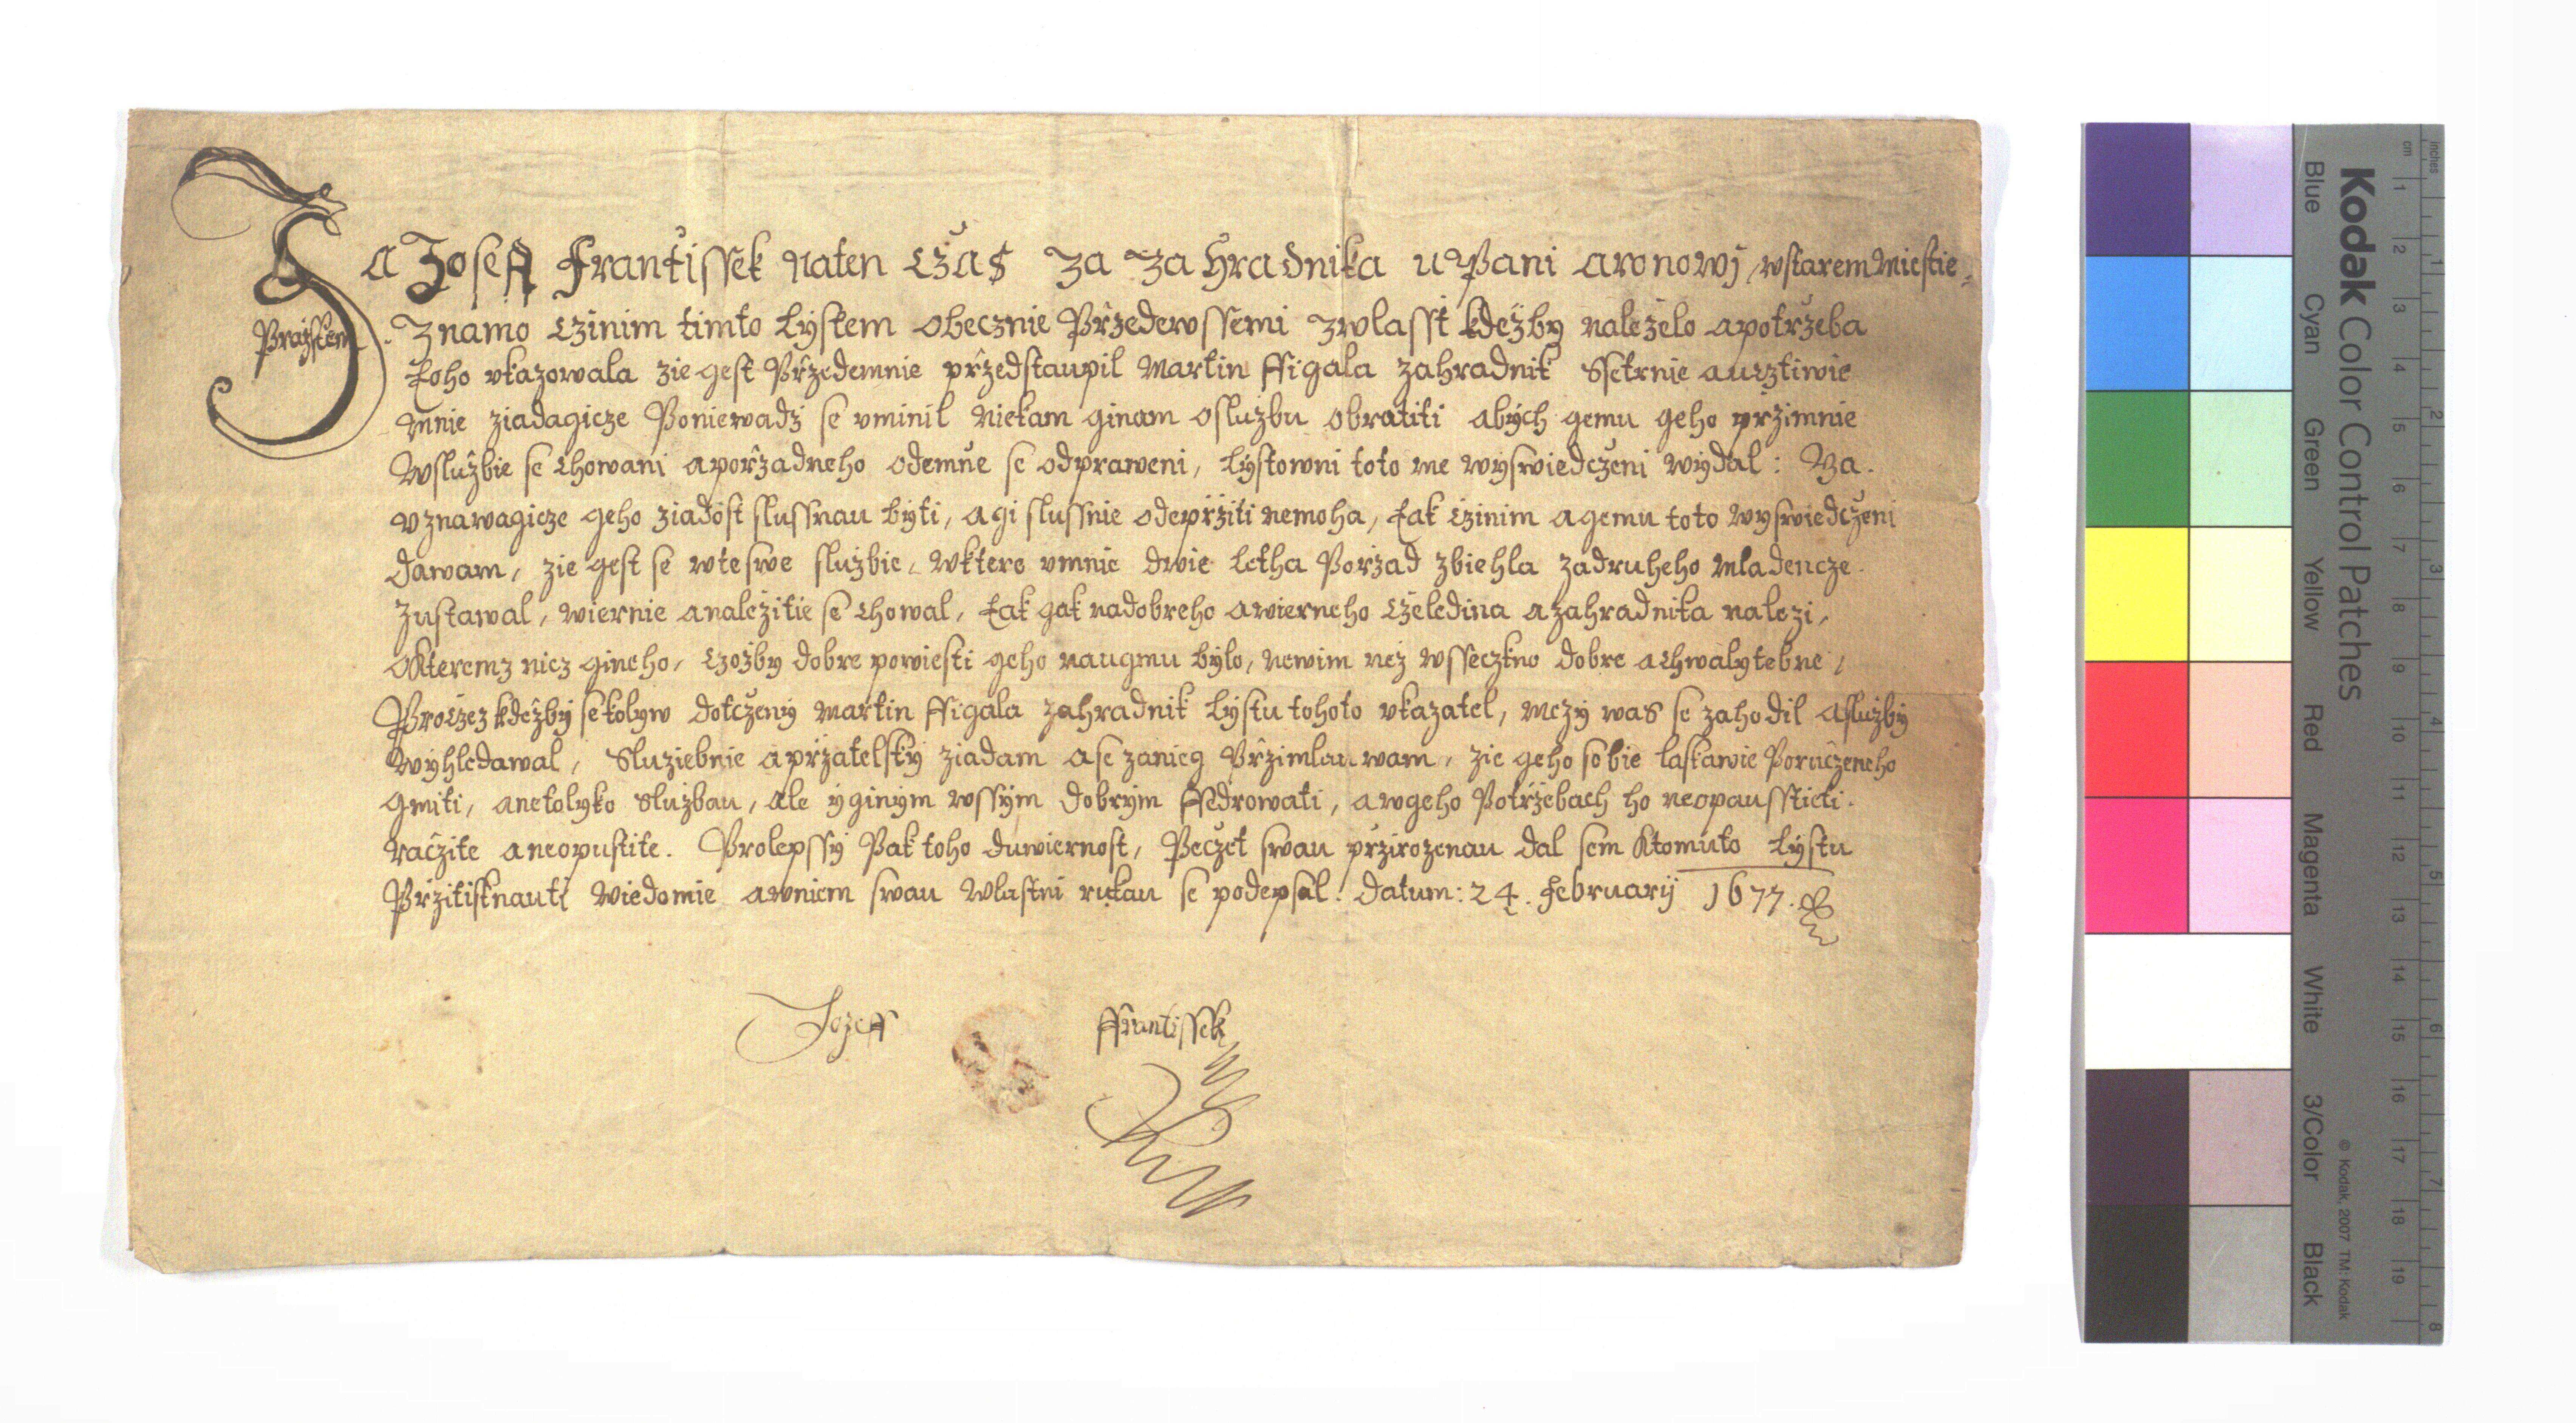 Ja Joseff Frantissek naten cžas za zahradnika u Pani aronowj, wstarem Miestie,
Prazskem. Znamo cžinim timto Lystem obecznie Přzedewssemi zwlasst kdežby naleželo apotržeba
toho vkazowala zie gest Přzedemnie přzedstaupil Martin ffigala zahradnik Ssetrnie aucztiwie
mnie ziadagicze Poniewadž se vminil niekam ginam oslužbu obratiti abych gemu geho přzimnie
wslužbie se chowani apořzadneho odemne se odpraweni, Lystowni toto me wyswiedczeni wydal: Ya.
vznawagicze geho ziadost slussnau byti, agi slussnie odepřžiti nemoha, tak czinim agemu toto wyswiedczeni
dawam, zie gest se wteswe službie, wktere vmnie dwie Letha Pořzad zbiehla zadruheho Mladencze.
Zustawal, wiernie analežitie se chowal, tak gak nadobreho awierneho cželedina azahradnika nalezi,
okteremz nicz gineho, czožby dobre powiesti geho naugmu bylo, newim než wsseczkno dobre achwalytebne,
Proczez kdežby setolyw dotczeny Martin ffigala zahradnik Lystu tohoto vkazatel, mezy was se zahodil aslužby
wyhledawal, Sluziebnie apřzatelsky ziadam ase zanieg Přzimlauwam, zie geho sobie laskawie Poručzeneho
gmiti, anetolyko Službau, ale yginym wssym dobrym ffedrowati, awgeho Potřžebach ho neopausstieti.
račzite aneopustite. Prolepssy Pak toho duwiernost, Peczet swau přzirozenau dal sem Ktomuto Lystu
Přzitisknauti wiedomie awniem swau wlastni rukau se podepsal. Datum: 24. February 1677.
Jozeff ffrantissek
Kodak Color Control Patches
Blue Cyan Green Yellow Red Magenta White 3/Color Black
© Kodak, 2007 TM: Kodak
inches 1 2 3 4 5 6 7 8
cm 1 2 3 4 5 6 7 8 9 10 11 12 13 14 15 16 17 18 19